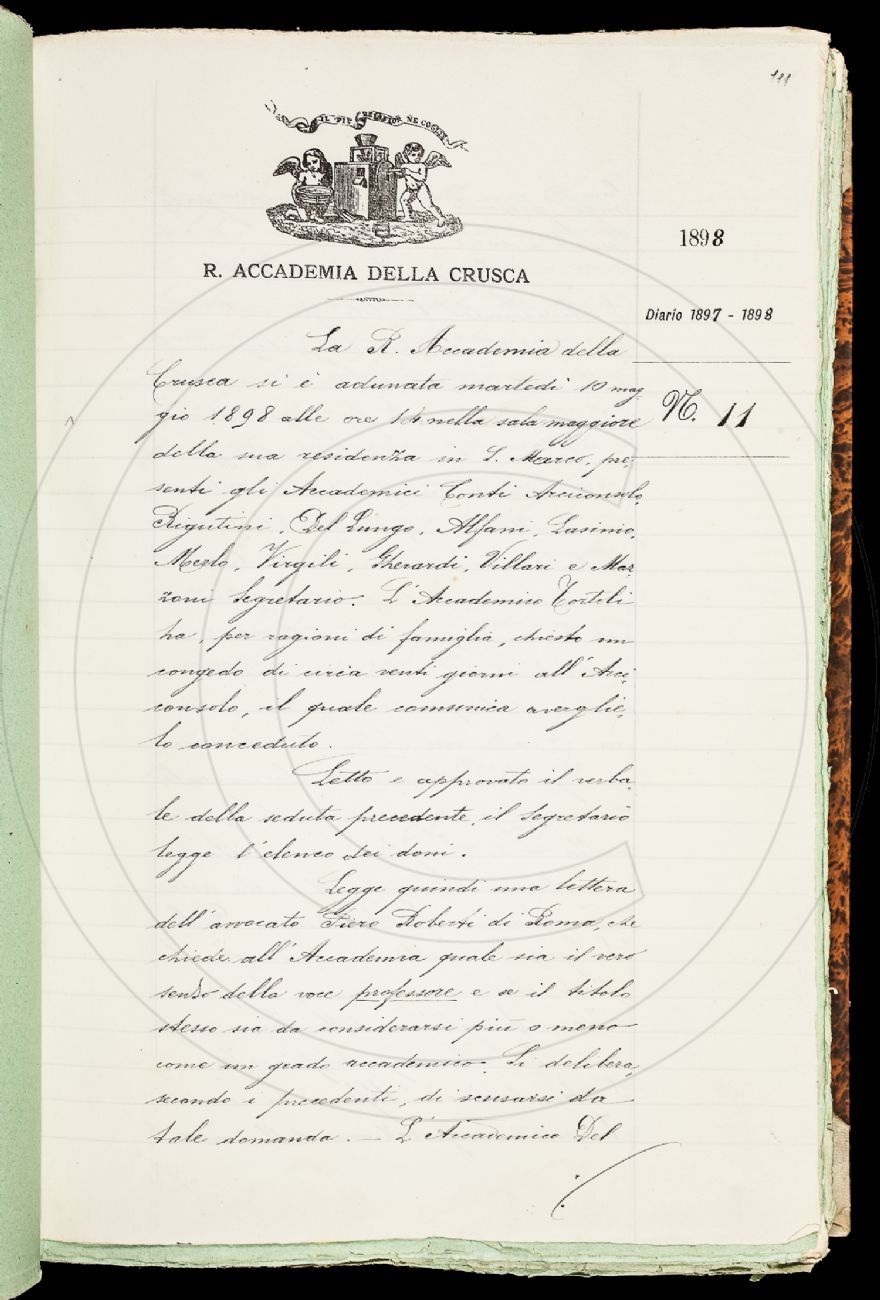 111
IL PIÙ BEL FIOR NE COGLIE
R. ACCADEMIA DELLA CRUSCA
1898
Diario 1897 - 1898
N. 11
La R. Accademia della
Crusca si è adunata martedì 10 mag-
gio 1898 alle ore 14 nella sala maggiore
della sua residenza in S. Marco, pre-
senti gli Accademici Conti Arciconsolo,
Rigutini, Del Lungo, Alfani, Lasinio,
Merlo, Virgili, Gherardi, Villari e Maz-
zoni Segretario. L'Accademico Tortoli
ha, per ragioni di famiglia, chiesto un
congedo di circa venti giorni all'Arci-
consolo, il quale comunica averglie-
lo conceduto.
Letto e approvato il verba-
le della seduta precedente, il Segretario
legge l'elenco dei doni.
Legge quindi una lettera
dell'avvocato Piero Roberti di Roma, che
chiede all'Accademia quale sia il vero
senso della voce professore e se il titolo
stesso sia da considerarsi più o meno
come un grado accademico. Si delibera,
secondo i precedenti, di scusarsi da
tale domanda. — L'Accademico Del